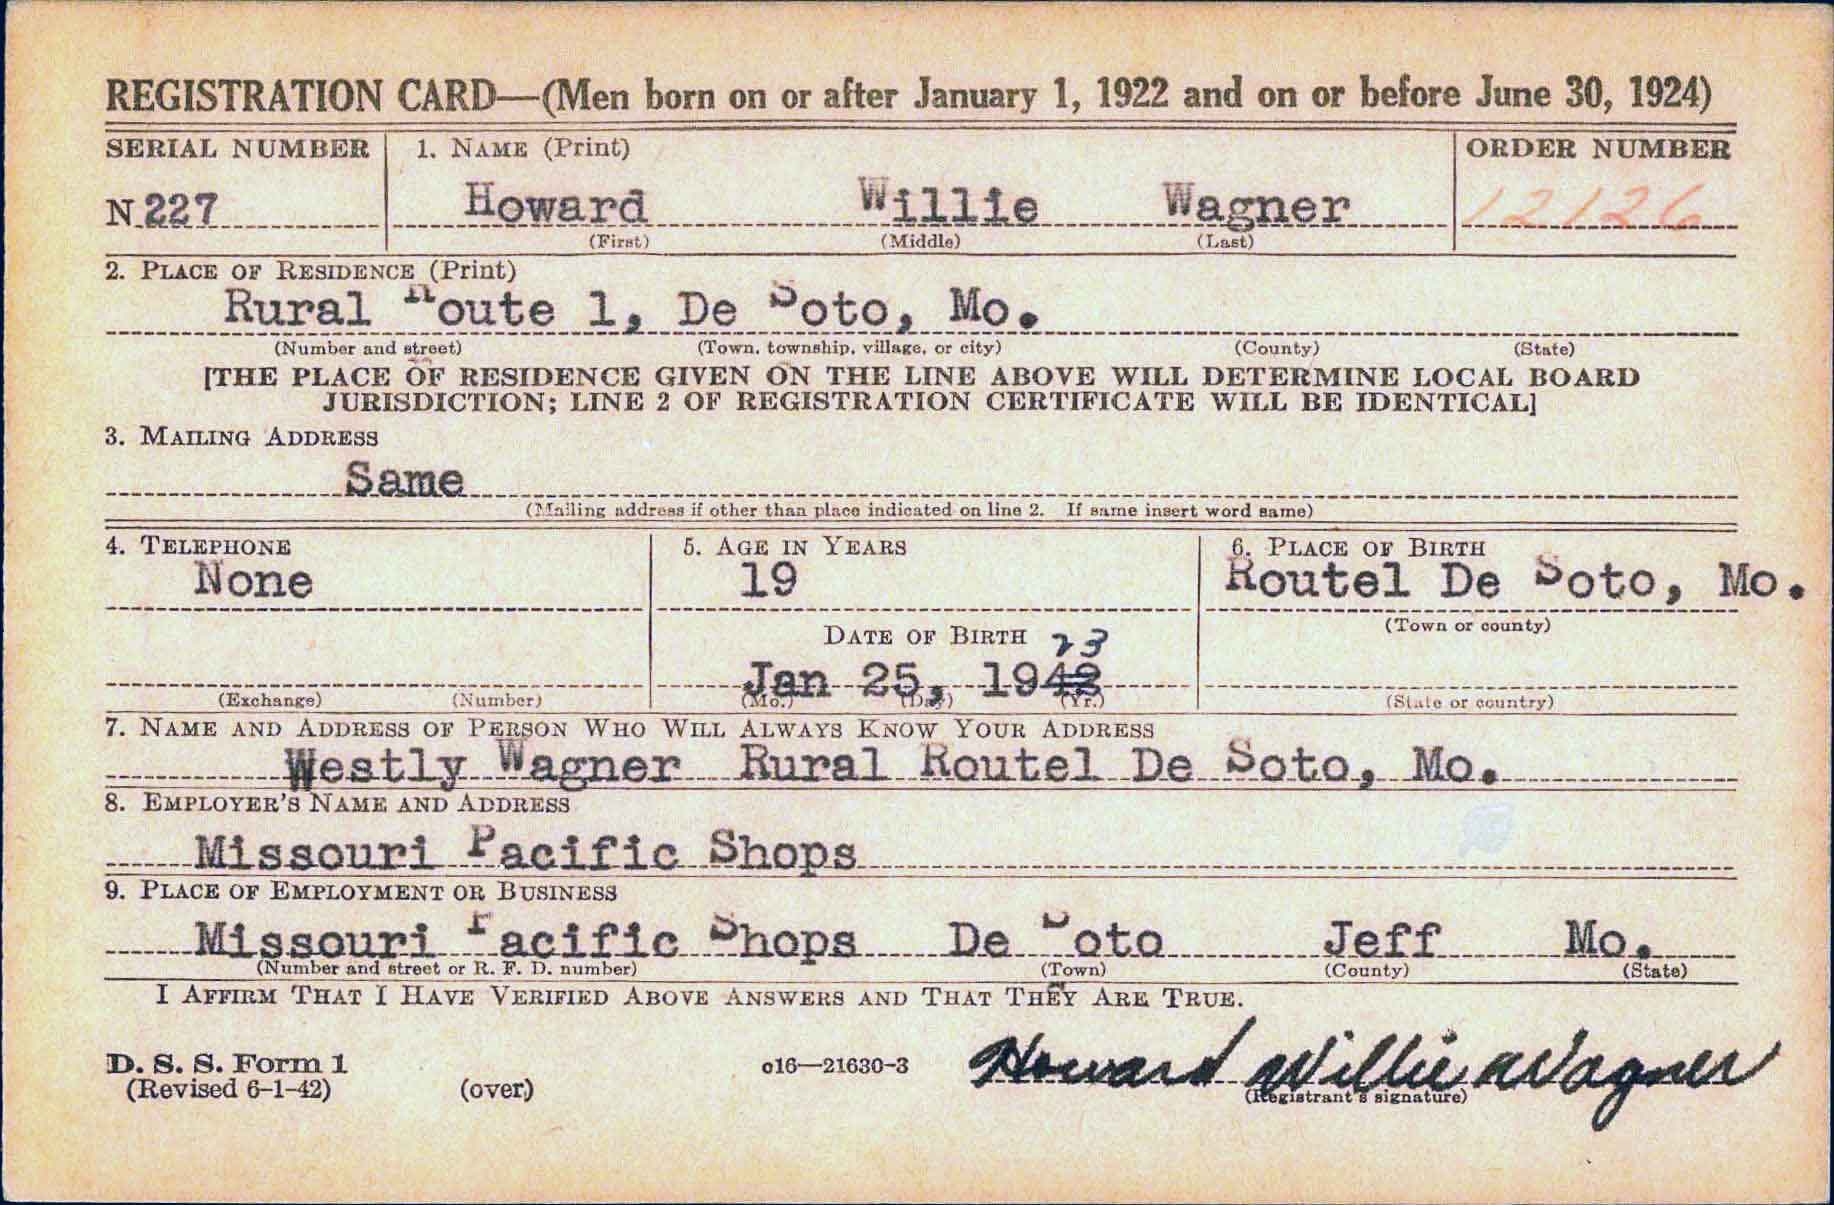 REGISTRATION CARD—(Men born on or after January 1, 1922 and on or before June 30, 1924)
SERIAL NUMBER 1. NAME (Print) ORDER NUMBER
N 227 Howard Willie Wagner 12126
(First) (Middle) (Last)
2. PLACE OF RESIDENCE (Print)
Rural Route 1, De Soto, Mo.
(Number and street) (Town, township, village, or city) (County) (State)
[THE PLACE OF RESIDENCE GIVEN ON THE LINE ABOVE WILL DETERMINE LOCAL BOARD
JURISDICTION; LINE 2 OF REGISTRATION CERTIFICATE WILL BE IDENTICAL]
3. MAILING ADDRESS
Same
(Mailing address if other than place indicated on line 2. If same insert word same)
4. TELEPHONE 5. AGE IN YEARS 6. PLACE OF BIRTH
None 19 Route1 De Soto, Mo.
(Town or county)
DATE OF BIRTH 23
Jan 25, 1942
(Exchange) (Number) (Mo.) (Day) (Yr.) (State or country)
7. NAME AND ADDRESS OF PERSON WHO WILL ALWAYS KNOW YOUR ADDRESS
Westly Wagner Rural Route1 De Soto, Mo.
8. EMPLOYER'S NAME AND ADDRESS
Missouri Pacific Shops
9. PLACE OF EMPLOYMENT OR BUSINESS
Missouri Pacific Shops De Soto Jeff Mo.
(Number and street or R. F. D. number) (Town) (County) (State)
I AFFIRM THAT I HAVE VERIFIED ABOVE ANSWERS AND THAT THEY ARE TRUE.
D. S. S. Form 1
(Revised 6-1-42) (over) c16—21630-3 Howard Willie Wagner
(Registrant's signature)